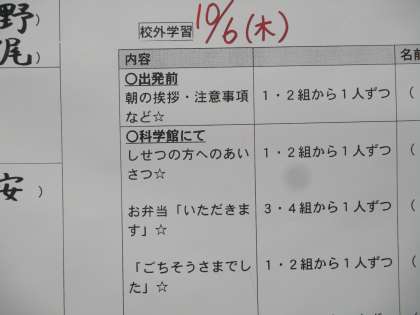 野)
尾)
安 )
校外学習 10/6(木)
内容 名前
○出発前
朝の挨拶・注意事項 1・2組から1人ずつ (
など☆
○科学館にて
しせつの方へのあい 1・2組から1人ずつ (
さつ☆
お弁当「いただきま 3・4組から1人ずつ (
す」☆
「ごちそうさまでし 1・2組から1人ずつ (
た」☆